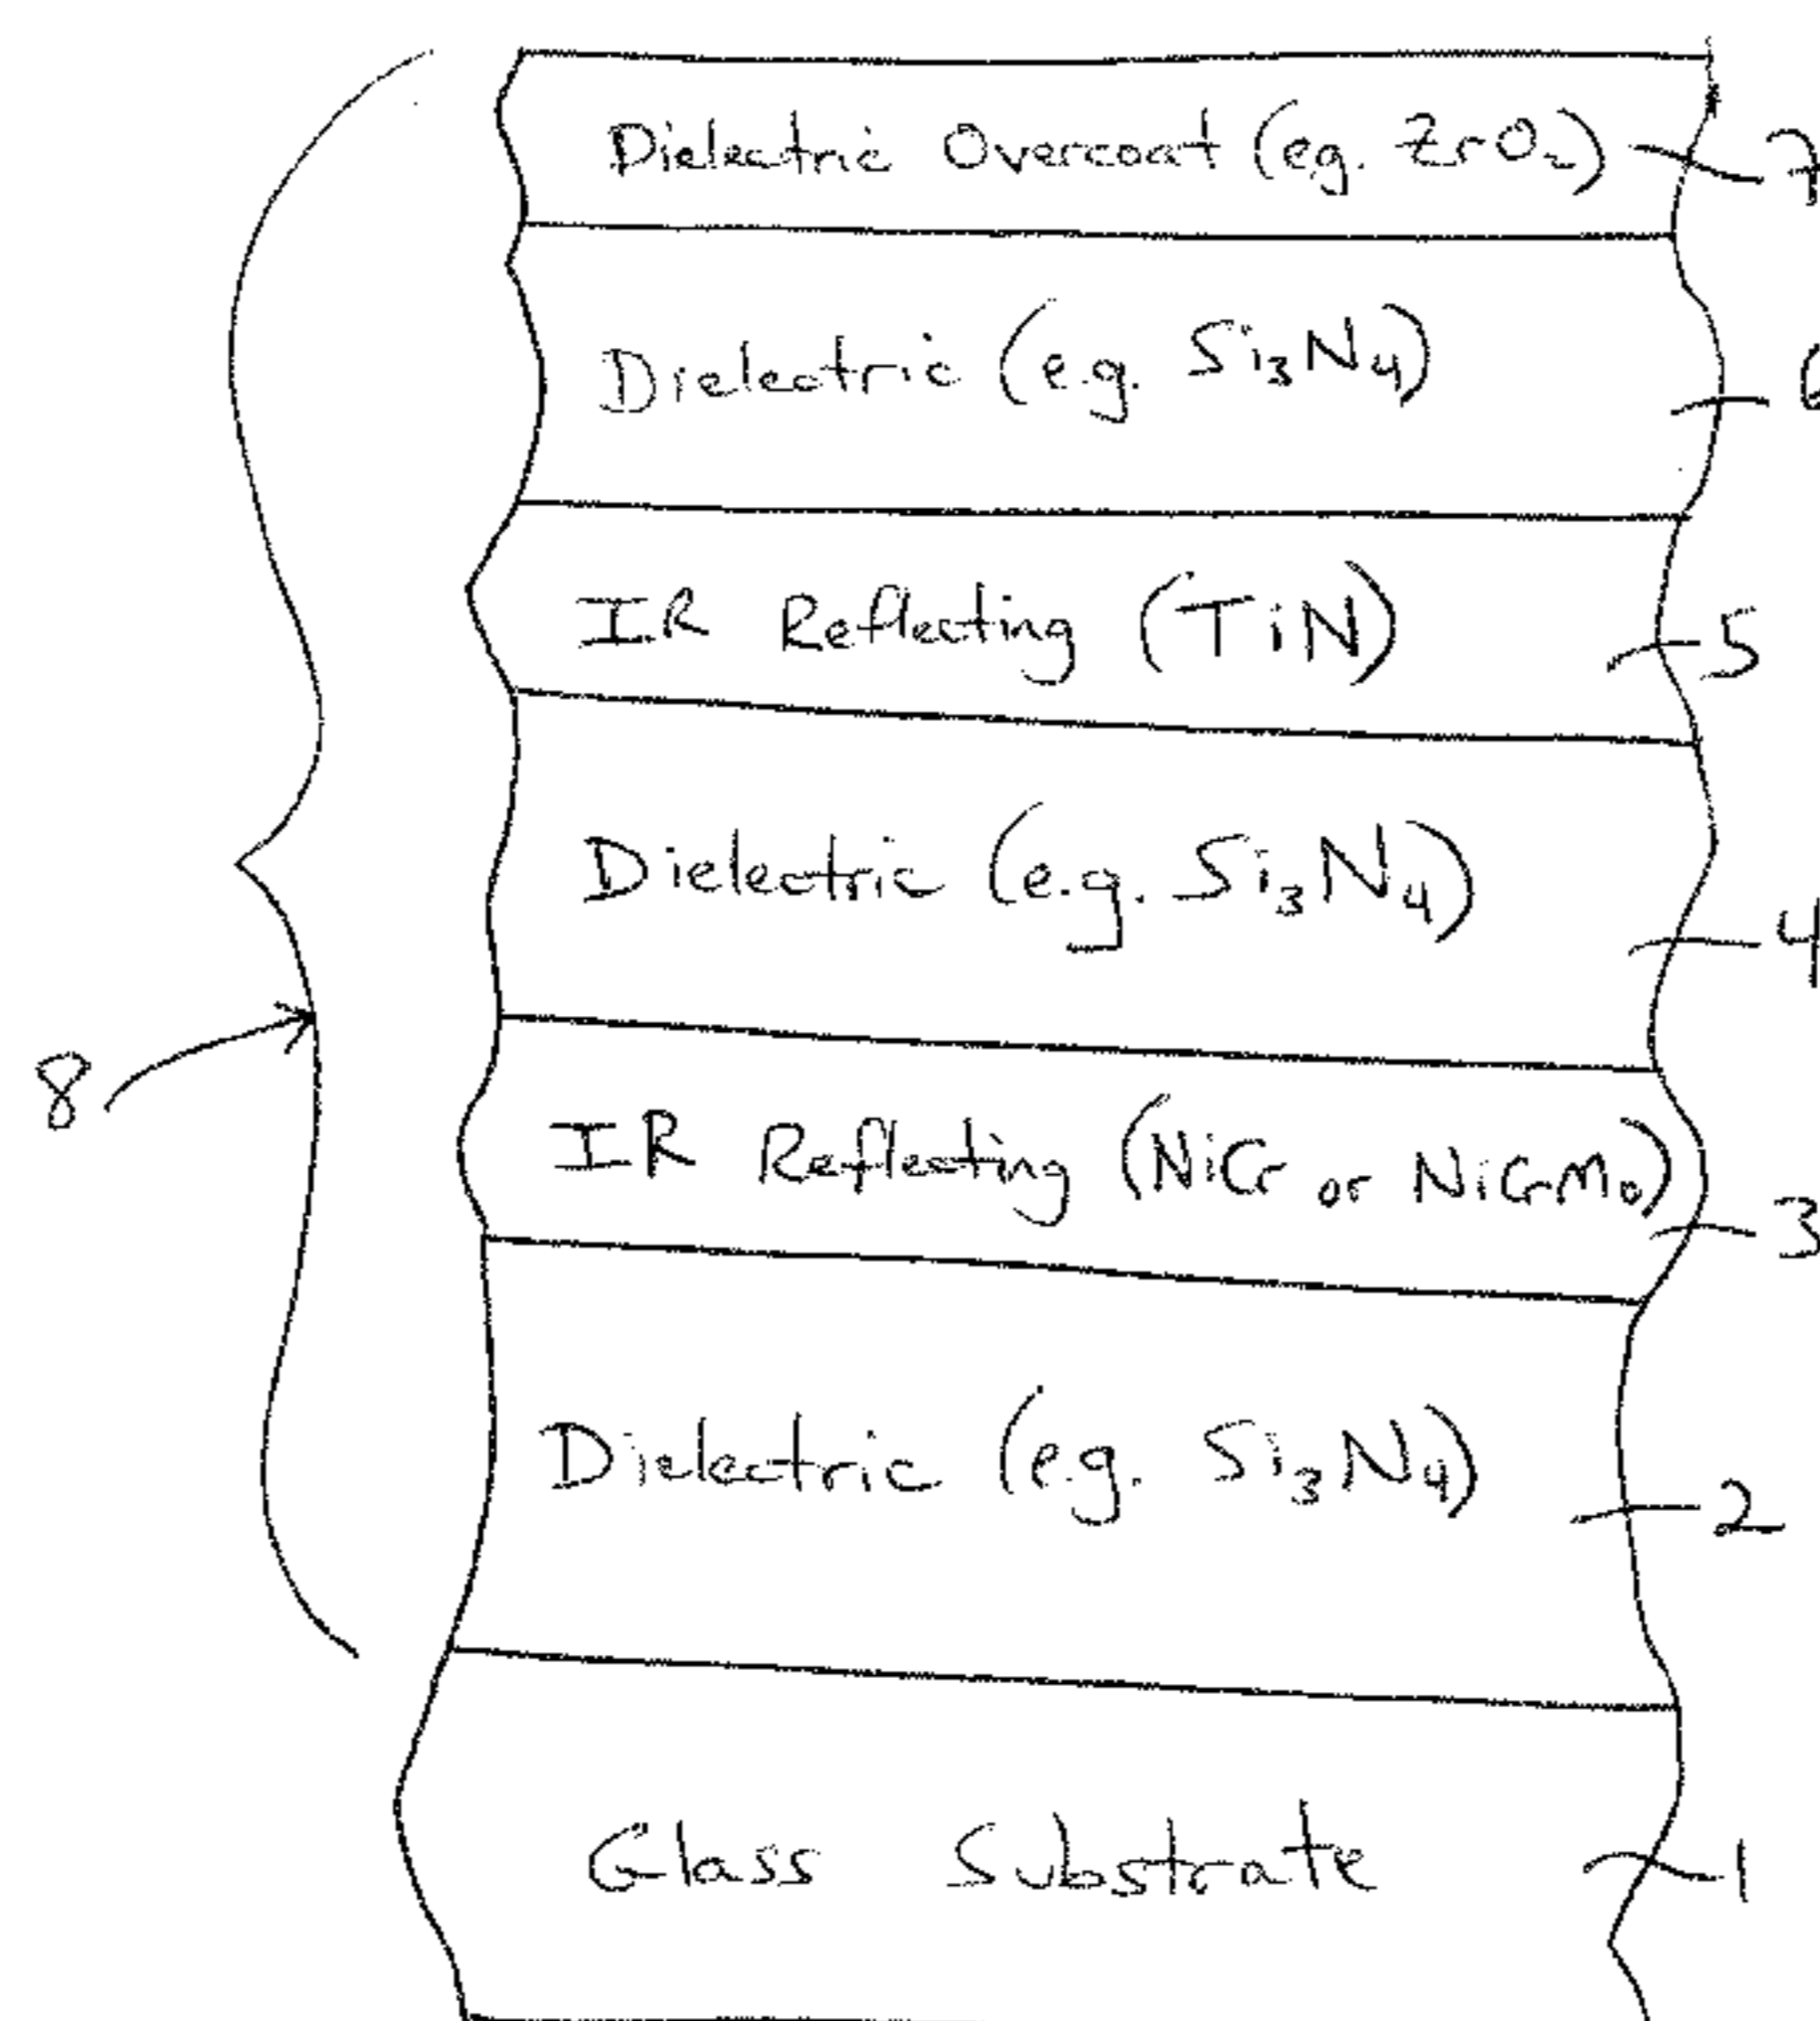 Dielectric Overcoat (eg. ZrO₂) 7
Dielectric (e.g. Si₃N₄) 6
IR Reflecting (TiN) 5
Dielectric (e.g. Si₃N₄) 4
8
IR Reflecting (NiCr or NiCrMo) 3
Dielectric (e.g. Si₃N₄) 2
Glass Substrate 1